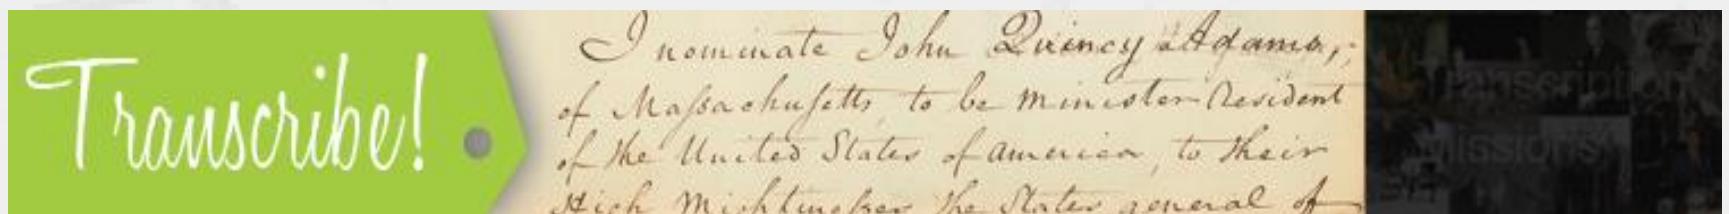 Transcribe!
I nominate John Quincy Adams,
of Maſsachuſetts, to be Minister Resident
of the United States of America, to their
High Mightineſses the States general of
Transcription
Missions